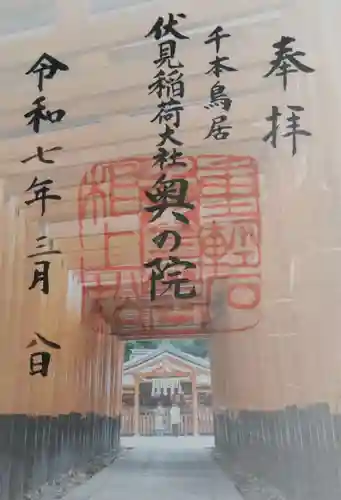 奉拝
千本鳥居
伏見稲荷大社
奥の院
令和七年三月八日